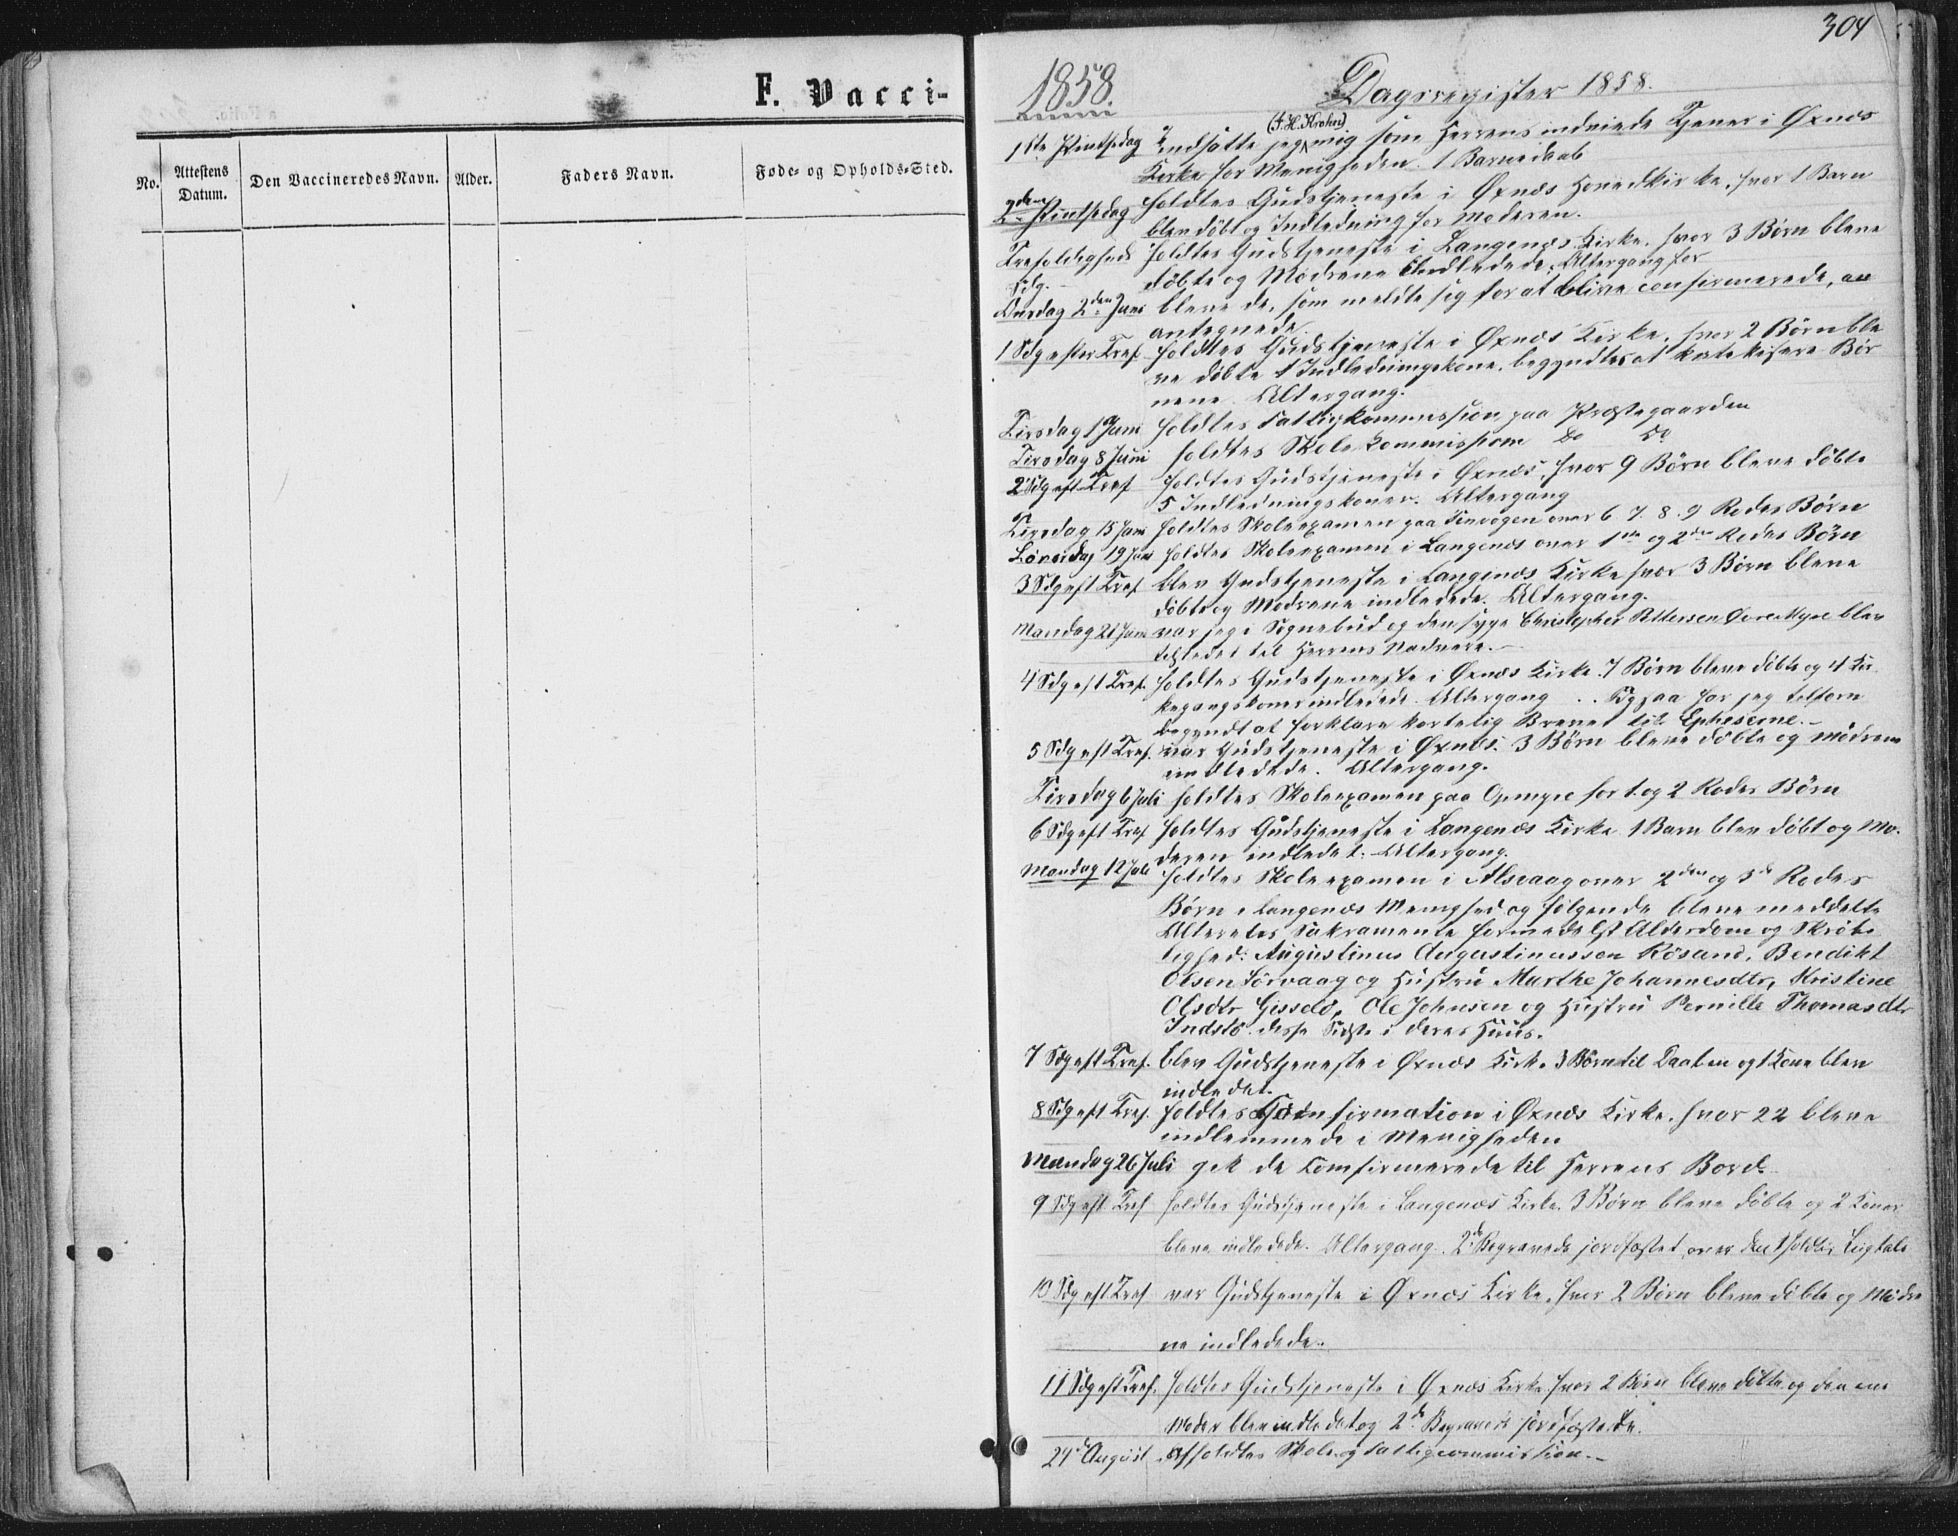 F. Vacci-
No.
Attestens Datum.
Den Vaccineredes Navn.
Alder.
Faders Navn.
Føde- og Opholds-Sted.
304
1858.
Dagsregister 1858.
(F. H. Krohn)
1ste Pintsedag indsatte jeg mig som Herrens indviede Tjener i Øxnæs
Kirke for Menigheden. 1 Barnedaab
2den Pintsedag holdtes Gudstjeneste i Øxnæs Hovedkirke, hvor 1 Barn
blev døbt og Indledning for Moderen.
Trefoldigheds holdtes Gudstjeneste i Langenæs Kirke, hvor 3 Børn bleve
Sdg. døbte og Mødrene indledede. Altergang for
Onsdag 2den Juni bleve de, som meldte sig for at blive confirmerede, an
antegnede.
1 Sdg efter Tref. holdtes Gudstjeneste i Øxnæs Kirke, hvor 2 Børn ble
ve døbte 1 Indledningskone. begyndtes at katekisere Bør
nene. Altergang.
Tirsdag Juni holdtes Fattigkommission paa Præstegaarden
Tirsdag 8 Juni holdtes Skolekommission Do Do
2 Sdg eft Tref holdtes Gudstjeneste i Øxnæs, hvor 9 Børn bleve døbte
5 Indledningskoner. Altergang
Tirsdag 15 Juni holdtes Skoleexamen paa Tinvogen over 6 7. 8. 9 Rodes Børn
Løverdag 19 Juni holdtes Skoleexamen i Langenæs over 1ste og 2den Rodes Børn
3 Sdg eft Tref blev Gudstjeneste i Langenæs Kirke hvor 3 Børn bleve
døbte og Mødrene indledede. Altergang.
Mandag 21 Juni var jeg i Sognebud og den syge Christopher Pettersen Øvre Myre blev
tilstedet til Herrens Nadvere.
4 Sdg eft Tref. holdtes Gudstjeneste i Øxnæs Kirke. 7 Børn bleve døbte og 4 Kir
kegangskoner indledede. Altergang. Ogsaa har jeg
begyndt at forklare kortelig Brevet til Epheserne.
5 Sdg eft Tref. var Gudstjeneste i Øxnæs. 3 Børn bleve døbte og mødrene
indledede. Altergang.
Tirsdag 6 Juli holdtes Skoleexamen paa Opmyre for 1. og 2 Rodes Børn
6 Sdg eft Tref holdtes Gudstjeneste i Langenæs Kirke 1 Barn blev døbt og Mo-
deren indledet. Altergang.
Mandag 12 Juli holdtes Skoleexamen i Alsvaag over 2den og 3de Rodes
Børn i Langenæs Menighed og følgende bleve meddelte
Alterets Sakramente formedelst Alderdom og Skrøbe
lighed: Augustinus Augustinussen Røsand, Bendikt
Olsen Sørvaag og Hustru Marthe Johannesdtr, Kristine
Olsdtr Gisslø, Ole Johnsen og Hustru Pernille Thomasdtr
Indstø. disse Sidste i deres Huus.
7 Sdg eft Tref. blev Gudstjeneste i Øxnæs Kirke 3 Børn til Daaben og 1 Kone blev
indledet.
8 Sdg eft Tref. holdtes Konfirmation i Øxnæs Kirke, hvor 22 bleve
indlemmede i Menigheden
Mandag 26 Juli gik de Comfirmerede til Herrens Bord.
9 Sdg eft Tref holdtes Gudstjeneste i Langenæs Kirke. 3 Børn bleve døbte og 2 Koner
bleve indledede. Altergang. 2de Begravede jordfæstet, over den 1 holdtes Liigtale
10 Sdg eft Tref var Gudstjeneste i Øxnæs Kirke, hvor 2 Børn bleve døbte og Mødre
ne indledede.
11 Sdg eft Tref. holdtes Gudstjeneste i Øxnæs Kirke hvor 2 Børn bleve døbte og den ene
Moder blev indledet og 2de Begravede jordfæstede.
24de August afholdtes Skole og Fattigcommission.